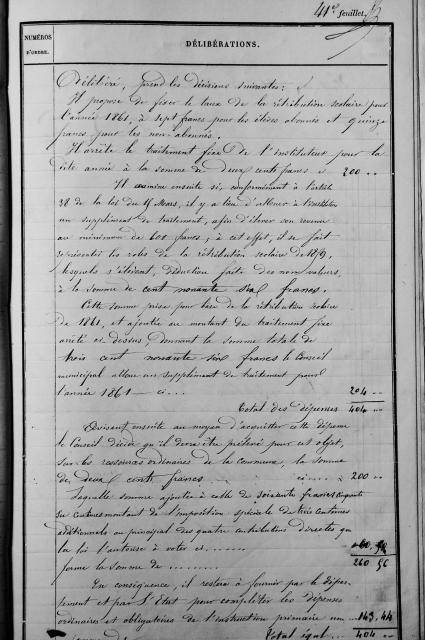 41e feuillet.
NUMÉROS
D'ORDRE.
DÉLIBÉRATIONS.
Délibéré, prend les décisions suivantes:
Il propose de fixer le taux de la rétribution scolaire pour
l'année 1861, à sept francs pour les élèves abonnés et quinze
francs pour les non-abonnés.
Il arrête le traitement fixe de l'instituteur pour la
dite année à la somme de deux cents francs ci 200 "
Il examine ensuite si, conformément à l'article
38 de la loi du 15 Mars, il y a lieu d'allouer à l'instituteur
un supplément de traitement, afin d'élever son revenu
au minimum de 600 francs; à cet effet, il se fait
représenter les rôles de la rétribution scolaire de 1859,
lesquels s'élèvent, déduction faite des non valeurs,
à la somme de cent novante six francs.
Cette somme prise pour base de la rétribution scolaire
de 1861, et ajoutée au montant du traitement fixe
arrêté ci dessus, donnant la somme totale de
trois cent novante six francs le Conseil
municipal alloue un supplément de traitement pour
l'année 1861 ci... 204 "
Total des dépenses 404 "
Avisant ensuite au moyen d'acquitter cette dépense
le Conseil décide qu'il devra être prélevé pour cet objet,
sur les ressources ordinaires de la commune, la somme
de deux cents francs ci 200 "
Laquelle somme ajoutée à celle de soixante francs cinquante
six centimes montant de l'imposition spéciale de trois centimes
additionnels au principal des quatre contributions directes que
la loi l'autorise à voter ci........ 60 56
forme la somme de ......... 260 56
En conséquence, il restera à fournir par le dépar-
tement et par l'État pour compléter les dépenses
ordinaires et obligatoires de l'instruction primaire une 143 44
somme de Total égal 404 "